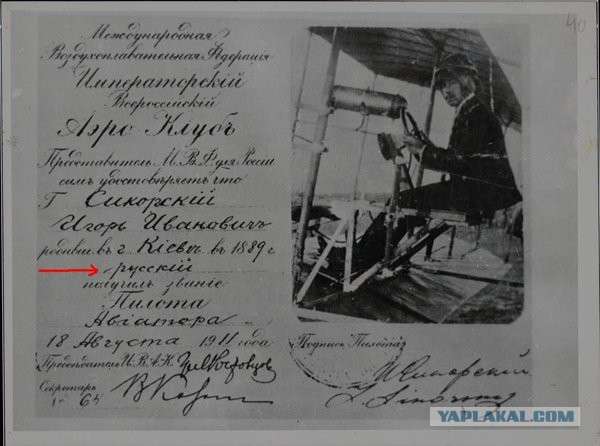 40
Международная
Воздухоплавательная Федерація
Императорскій
Всероссійскій
Аэро-Клубъ
Представитель М. В. Ф. для Россіи
симъ удостовѣряетъ что
Г Сикорскій
Игорь Ивановичъ
родивш. въ г Кіевѣ въ 1889 г.
русскій
получилъ званіе
Пилота
Авіатора
18 Августа 1911 года
Предсѣдатель И. В. А. К.
Секретарь
№ 65
Подпись Пилота
И Сикорский
Sikorsky
YAPLAKAL.COM